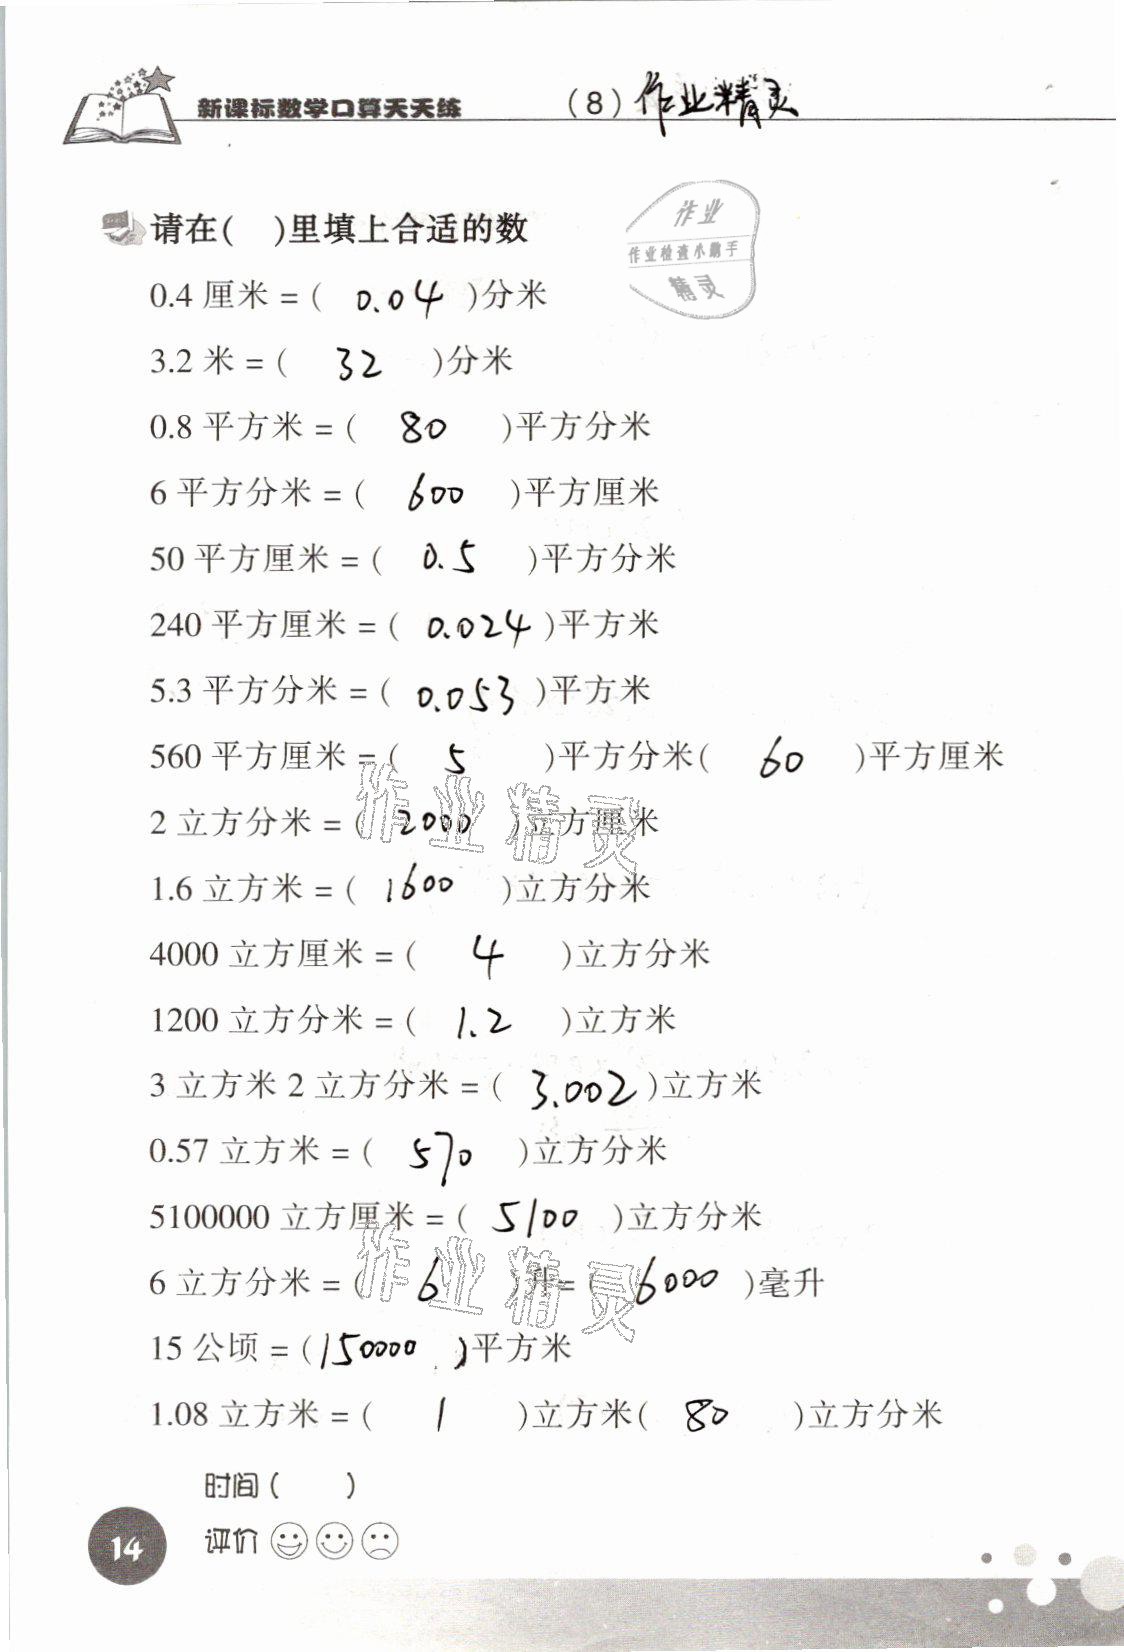 新课标数学口算天天练 (8) 作业精灵
作业
作业检查小助手
精灵
请在( )里填上合适的数
0.4 厘米 = ( 0.04 )分米
3.2 米 = ( 32 )分米
0.8 平方米 = ( 80 )平方分米
6 平方分米 = ( 600 )平方厘米
50 平方厘米 = ( 0.5 )平方分米
240 平方厘米 = ( 0.024 )平方米
5.3 平方分米 = ( 0.053 )平方米
560 平方厘米 = ( 5 )平方分米( 60 )平方厘米
作业精灵
2 立方分米 = ( 2000 )立方厘米
1.6 立方米 = ( 1600 )立方分米
4000 立方厘米 = ( 4 )立方分米
1200 立方分米 = ( 1.2 )立方米
3 立方米 2 立方分米 = ( 3.002 )立方米
0.57 立方米 = ( 570 )立方分米
5100000 立方厘米 = ( 5100 )立方分米
作业精灵
6 立方分米 = ( 6 )升= ( 6000 )毫升
15 公顷 = ( 150000 )平方米
1.08 立方米 = ( 1 )立方米( 80 )立方分米
时间( )
评价
14